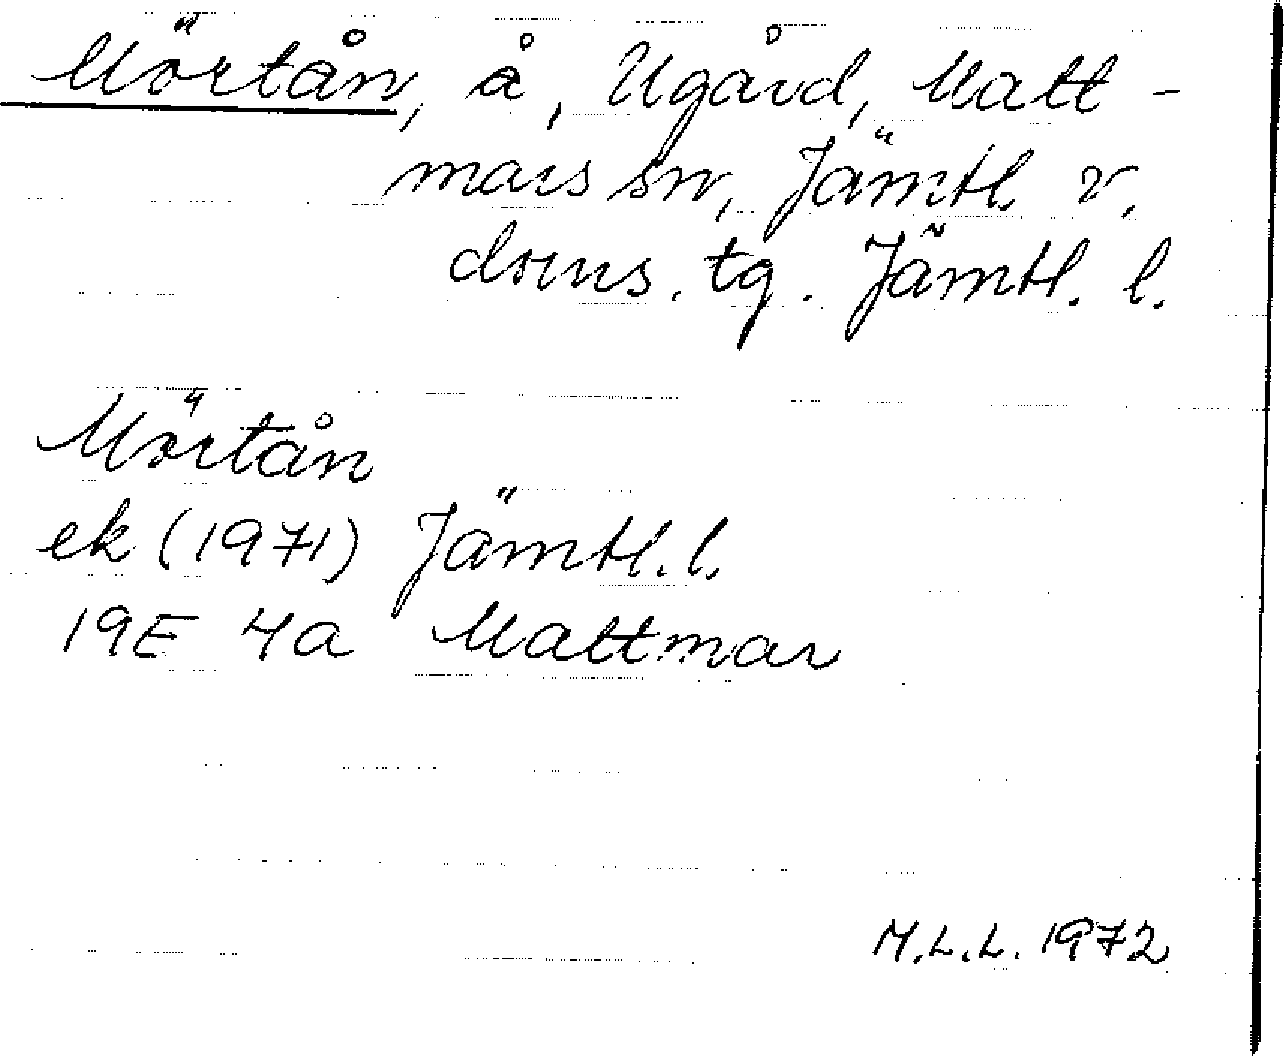 Mörtån, å, Ugård, Matt-
mars sn, Jämtl. v.
doms. tg. Jämtl. l.
Mörtån
ek (1971) Jämtl. l.
19E 4a Mattmar
M.L.L. 1972